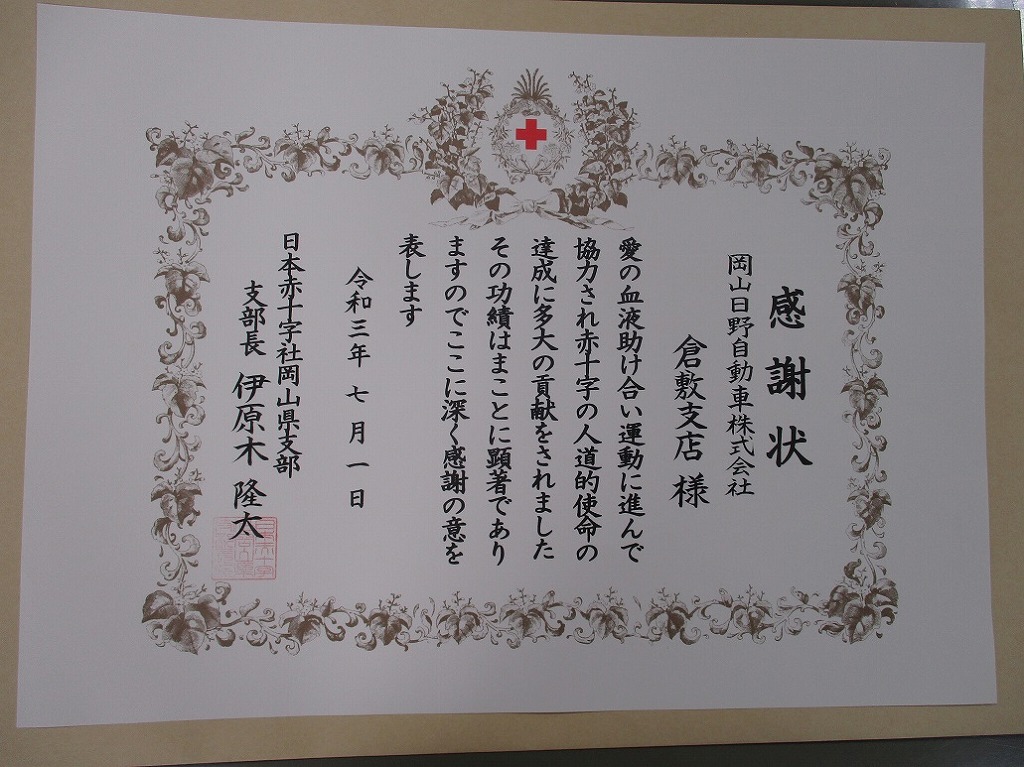 感謝状
岡山日野自動車株式会社
倉敷支店 様
愛の血液助け合い運動に進んで
協力され赤十字の人道的使命の
達成に多大の貢献をされました
その功績はまことに顕著であり
ますのでここに深く感謝の意を
表します
令和三年七月一日
日本赤十字社岡山県支部
支部長 伊原木 隆太